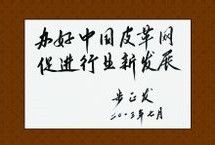 办好中国皮革网
促进行业新发展
步正发
二〇〇三年七月